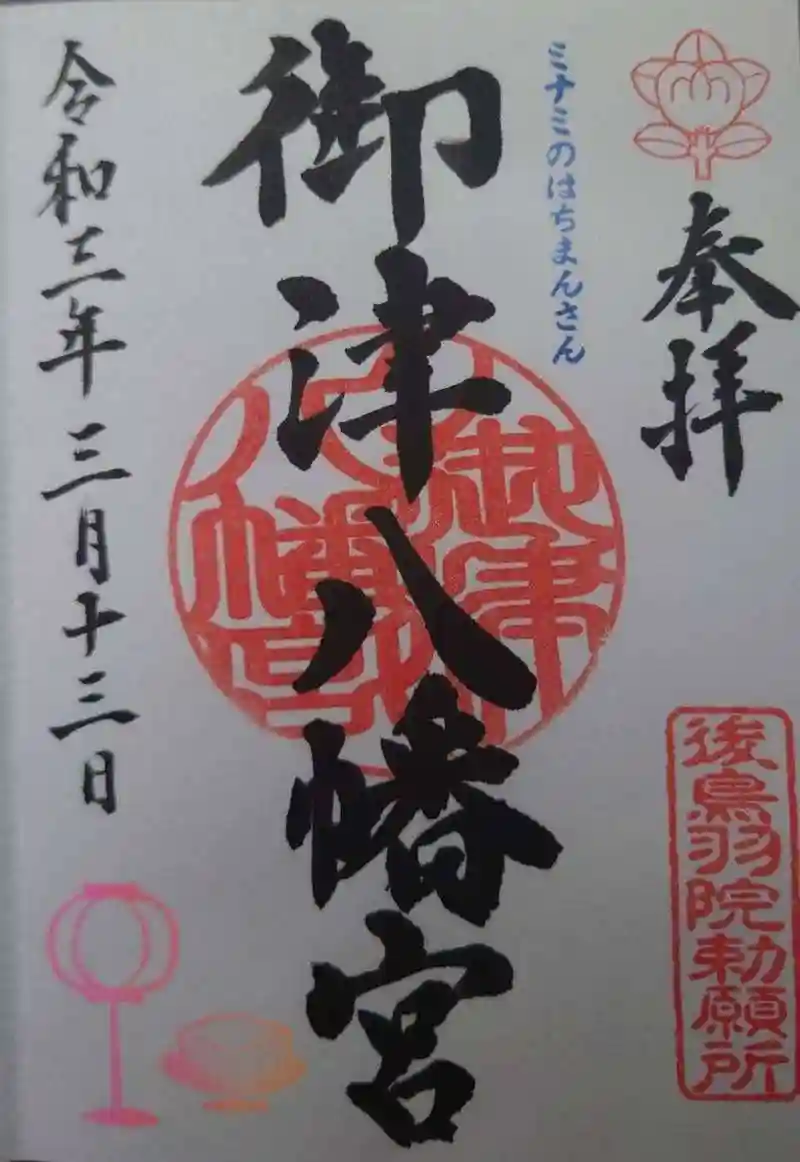 奉拝
後鳥羽院勅願所
ミナミのはちまんさん
御津八幡宮
令和三年三月十三日